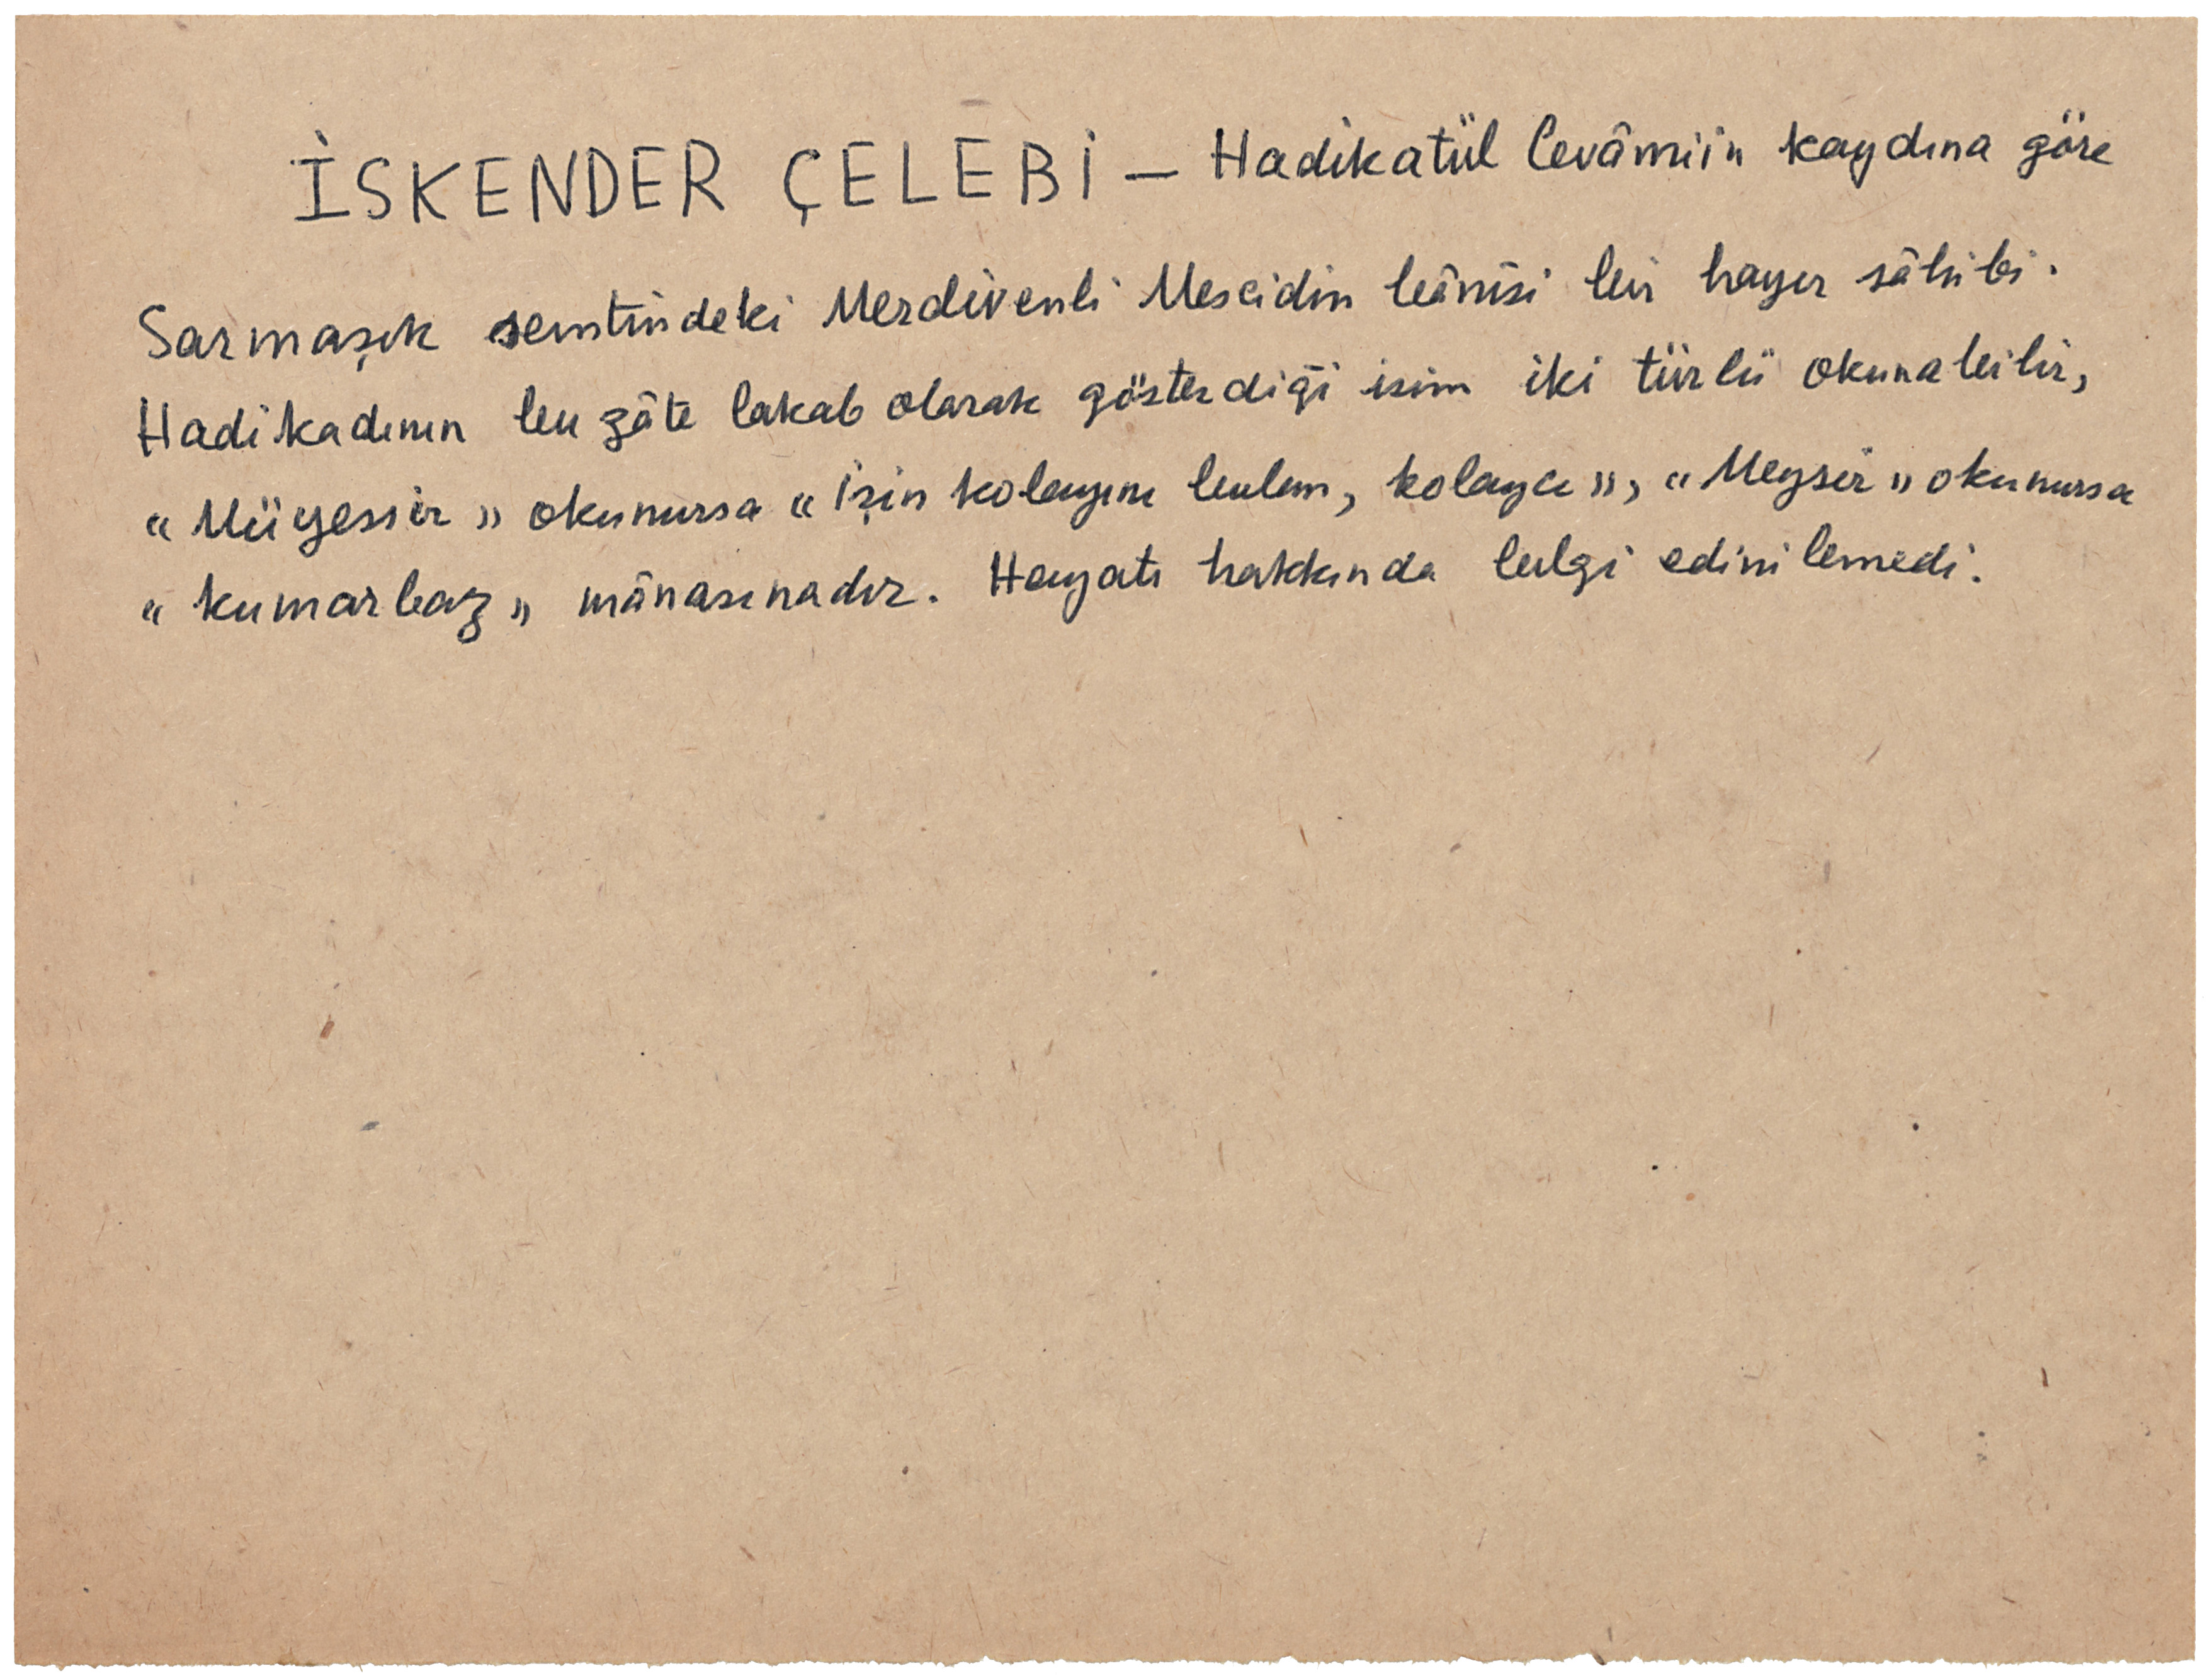 İSKENDER ÇELEBİ — Hadikatül Cevâmiin kaydına göre
Sarmaşık semtindeki Merdivenli Mescidin bânisi bir hayır sâhibi.
Hadikadının bu zâte lakab olarak gösterdiği isim iki türlü okunabilir,
« Müyessir » okunursa « İşin kolayını bulan, kolaycı », « Meysir » okunursa
« kumarbaz » mânasınadır. Hayatı hakkında bilgi edinilemedi.